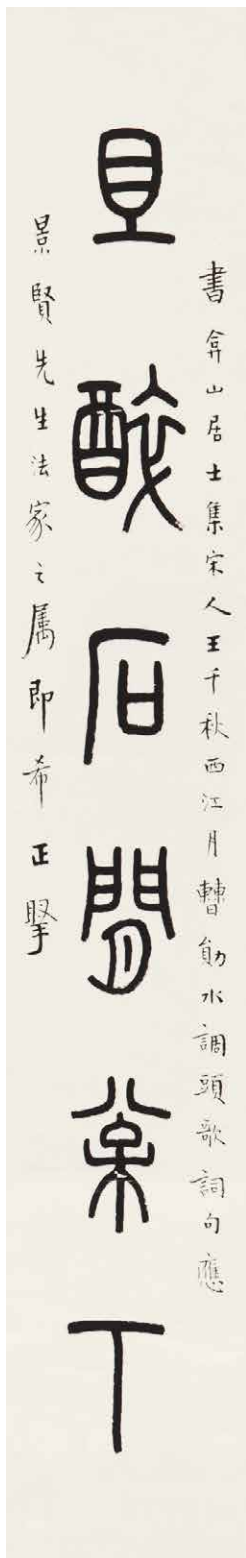 書弇山居士集宋人王千秋西江月曹勛水調頭歌詞句應
且醉石間下
景賢先生法家之属即希正掔